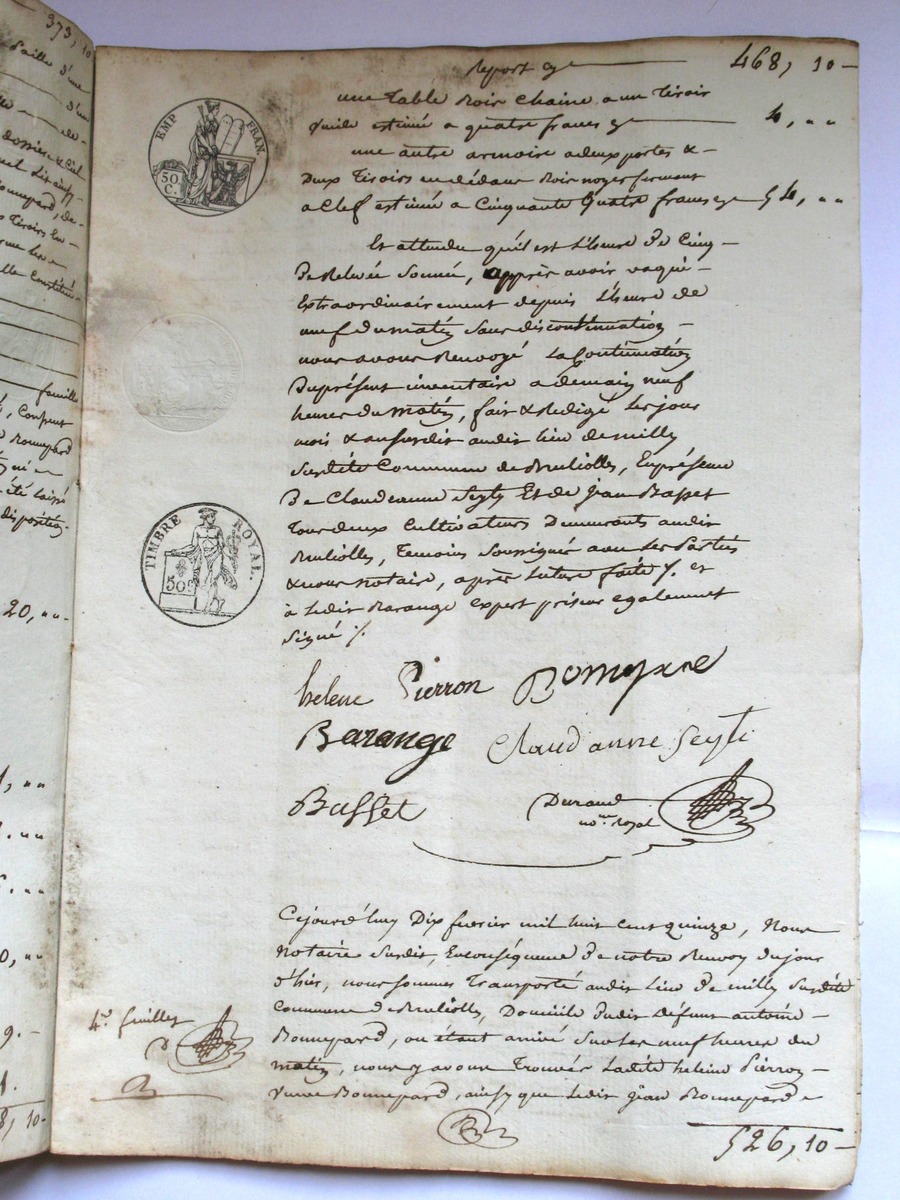 Report cy 468, 10
une table bois chaine a un tiroir
vuide estimé a quatre francs cy 4, " "
une autre armoire a deux portes &
Deux tiroirs en dédans bois noyer fermant
a Clef estimé a Cinquante quatre francs cy 54, " "
Et attendu qu'il est L'heure de Cinq
De Relevée Sonnée, apprès avoir vaqué
Extraordinairement depuis L'heure de
neuf du matin Sans discontinuation
nous avons Renvoyé La Continuation
Du présent inventaire a demain neuf
heures du matin, fait & Redigé Les jour
mois & an Susdit audit Lieu de milly
Susdite Commune de Bruliolles, En présence
De Claudeanne Seyty Et de jean Basset
Tous deux Cultivateurs Demeurants audit
Bruliolles, Temoins Soussignés avec Les Parties
& nous notaire, après Lecture faite /. et
à Ledit Barange expert priseur egalement
Signé /.
helene Pierron Bonnepard
Barange Claud anne Seyti
Basset
Durand
nore Royal
Cejourd'huy Dix fevrier mil huit cent quinze, Nous
Notaire Susdit, En conséquence De notre Renvoy du jour
d'hier, nous sommes Transporté audit Lieu De milly Susdite
Commune de Bruliolles, Domicile Dudit défunt antoine
Bonnepard, ou étant arrivé Sur les neuf heures du
matin, nous y avons Trouvé Ladite heleine Pierron
Veuve Bonnepard, ainsy que Ledit jean Bonnepard
526, 10
4e. feuillet
EMP. FRAN.
50 C.
TIMBRE ROYAL.
50 c
373, 10
paille d'une
d'un
de
Bonnepard, de
Tiroirs En
famille
Bonnepard
été laissé
disposition.
20, " "
9.
8, 10